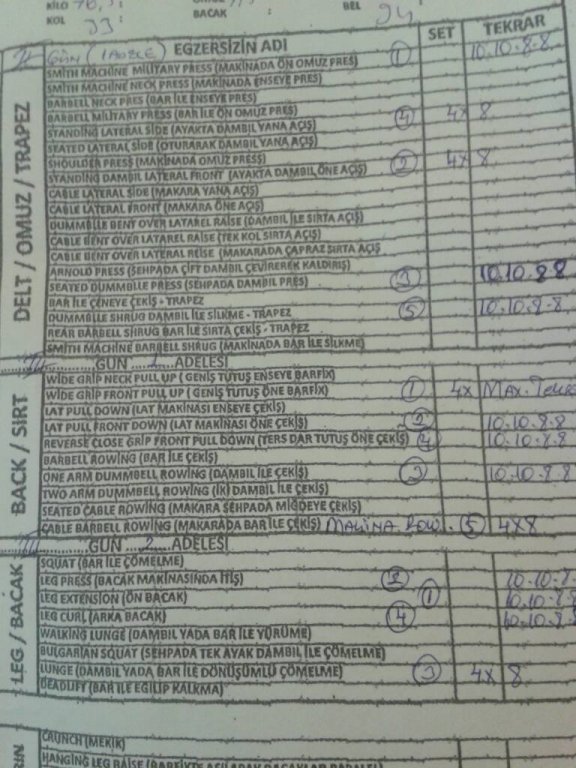 KİLO 76,5 :
KOL 33 : BACAK : BEL 94
GÜN EGZERSİZİN ADI SET TEKRAR
DELT / OMUZ / TRAPEZ
SMITH MACHINE MILITARY PRESS (MAKİNADA ÖN OMUZ PRES) 1 10.10.8.8
SMITH MACHINE NECK PRESS (MAKİNADA ENSEYE PRES)
BARBELL NECK PRES (BAR İLE ENSEYE PRES)
BARBELL MILITARY PRESS (BAR İLE ÖN OMUZ PRES) 4 4x 8
STANDING LATERAL SİDE (AYAKTA DAMBIL YANA AÇIŞ)
SEATED LATERAL SİDE (OTURARAK DAMBIL YANA AÇIŞ)
SHOULDER PRESS (MAKİNADA OMUZ PRESS) 2 4x 8
STANDING DAMBIL LATERAL FRONT (AYAKTA DAMBIL ÖNE AÇIŞ)
CABLE LATERAL SİDE (MAKARA YANA AÇIŞ)
CABLE LATERAL FRONT (MAKARA ÖNE AÇIŞ)
DUMMBILE BENT OVER LATAREL RAISE (DAMBIL İLE SIRTA AÇIŞ)
CABLE BENT OVER LATAREL RAISE (TEK KOL SIRTA AÇIŞ)
CABLE BENT OVER LATERAL REISE (MAKARADA ÇAPRAZ SIRTA AÇIŞ
ARNOLD PRESS (SEHPADA ÇİFT DAMBIL ÇEVİREREK KALDIRIŞ)
SEATED DUMMBBLE PRESS (SEHPADA DAMBIL PRES) 3 10.10.8 8
BAR İLE ÇENEYE ÇEKİŞ - TRAPEZ
DUMMBBLE SHRUG DAMBIL İLE SİLKME - TRAPEZ 5 10.10.8.8
REAR BARBELL SHRUG BAR İLE SIRTA ÇEKİŞ - TRAPEZ
SMITH MACHINE BARBELL SHRUG (MAKİNADA BAR İLE SİLKME)
GÜN ADELESİ
BACK / SIRT
WIDE GRIP NECK PULL UP ( GENİŞ TUTUŞ ENSEYE BARFİX)
WIDE GRIP FRONT PULL UP ( GENİŞ TUTUŞ ÖNE BARFİX) 1 4x Max.
LAT PULL DOWN (LAT MAKİNASI ENSEYE ÇEKİŞ)
LAT PULL FRONT DOWN (LAT MAKİNASI ÖNE ÇEKİŞ) 2 10.10.8.8
REVERSE CLOSE GRIP FRONT PULL DOWN (TERS DAR TUTUŞ ÖNE ÇEKİŞ) 4 10.10.8.8
BARBELL ROWING (BAR İLE ÇEKİŞ)
ONE ARM DUMMBELL ROWING (DAMBIL İLE ÇEKİŞ) 3 10.10.8.8
TWO ARM DUMMBELL ROWING (İKİ DAMBIL İLE ÇEKİŞ)
SEATED CABLE ROWING (MAKARA SEHPADA MİĞDEYE ÇEKİŞ)
CABLE BARBELL ROWING (MAKARADA BAR İLE ÇEKİŞ) MAKİNA ROW. 5 4x8
GÜN 2 ADELESİ
LEG / BACAK
SQUAT (BAR İLE ÇÖMELME)
LEG PRESS (BACAK MAKİNASINDA İTİŞ) 2 10.10.8
LEG EXTENSION (ÖN BACAK) 1 10.10.8.8
LEG CURL (ARKA BACAK) 4 10.10.8.8
WALKING LUNGE (DAMBIL YADA BAR İLE YÜRÜME)
BULGARIAN SQUAT (SEHPADA TEK AYAK DAMBIL İLE ÇÖMELME)
LUNGE (DAMBIL YADA BAR İLE DÖNÜŞÜMLÜ ÇÖMELME) 3 4x 8
DEADLIFT (BAR İLE EĞİLİP KALKMA)
CRUNCH (MEKİK)